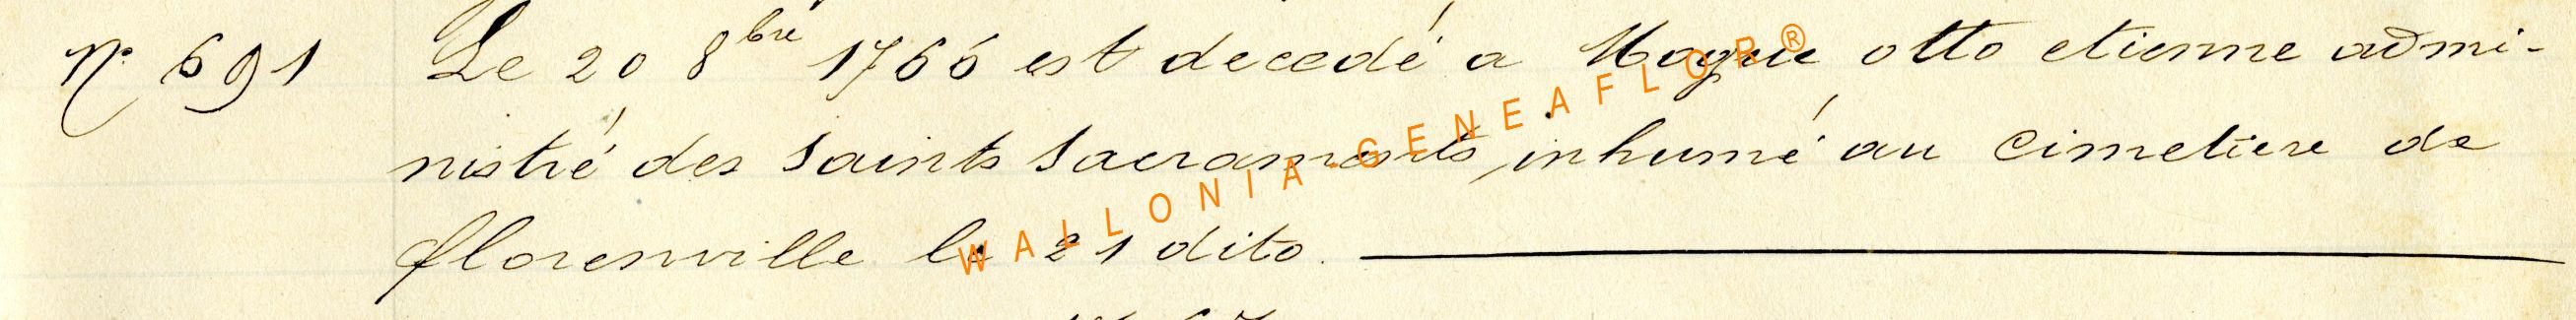 N° 691 Le 20 8bre 1766 est decedé a Hogne otto etienne admi-
nistré des Saints Sacraments, inhumé au Cimetiere de
florenville le 21 dito.
WALLONIA-GENEAFLOR®